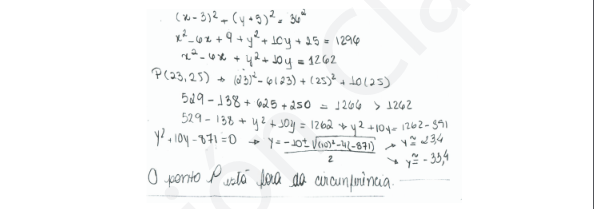 (x-3)² + (y+5)² = 36²
x² - 6x + 9 + y² + 10y + 25 = 1296
x² - 6x + y² + 10y = 1262
P(23,25) → (23)² - 6(23) + (25)² + 10(25)
529 - 138 + 625 + 250 = 1266 > 1262
529 - 138 + y² + 10y = 1262 → y² + 10y = 1262 - 391
y² + 10y - 871 = 0 → y = -10 ± √(10)² - 4(-871) / 2 → y ≅ 23,4
→ y ≅ -33,4
O ponto P está fora da circunferência.